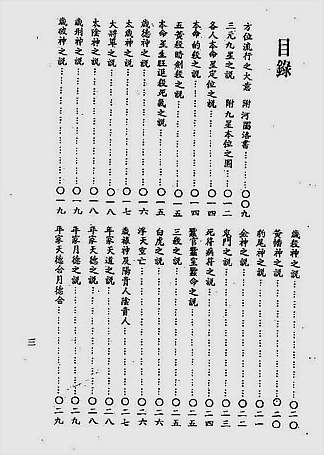 目錄
方位流行之大意 附河圖洛書……〇〇九
三元九星之說 附九星本位之圖……〇一二
各人本命星定位之說……〇一四
本命的殺之說……〇一四
五黃殺時剋殺之說……〇一五
本命星生旺退殺死氣之說……〇一五
歲德神之說……〇一六
太歲神之說……〇一七
大將軍之說……〇一八
太陰神之說……〇一八
歲刑神之說……〇一九
歲破神之說……〇一九
歲殺神之說……〇二〇
黃幡神之說……〇二〇
豹尾神之說……〇二一
金神之說……〇二二
鬼門之說……〇二三
死符病符之說……〇二四
蠶官蠶室蠶命之說……〇二五
三殺之說……〇二五
白虎之說……〇二六
浮天空亡……〇二六
歲祿神及陽貴人陰貴人……〇二七
年家天道之說……〇二八
年家天德之說……〇二八
年家月德之說……〇二九
年家天德合月德合……〇二九
三